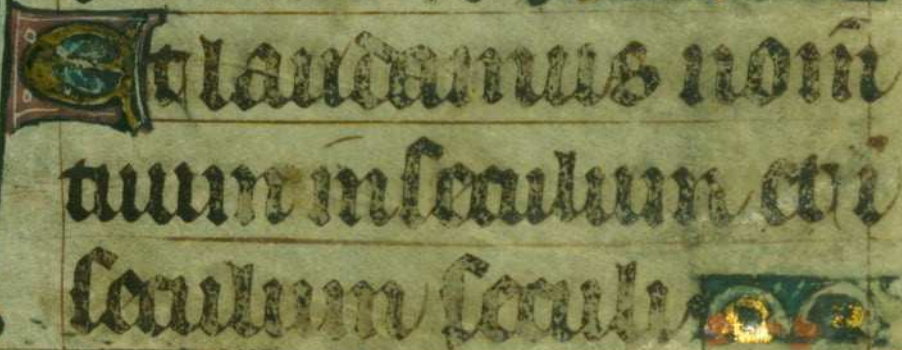 Et laudamus nom̄
tuum in seculum et i
seculum seculi